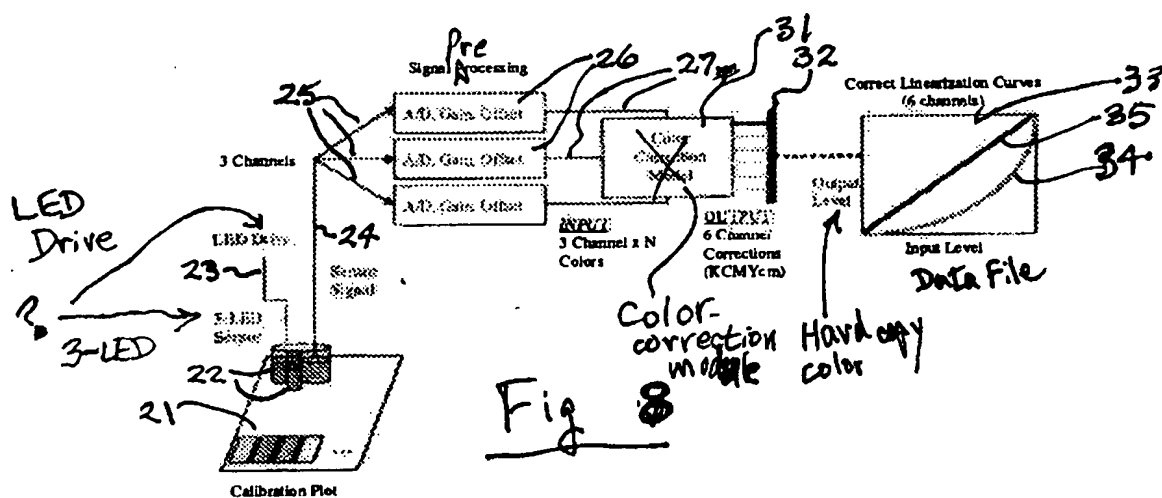 Pre
Signal Processing
25
26
27
31
32
33
35
34
Correct Linearization Curves
(6 channels)
A/D, Gain, Offset
A/D, Gain, Offset
A/D, Gain, Offset
3 Channels
Color
Correction
Model
Output
Level
Input Level
Data File
INPUT:
3 Channel x N
Colors
OUTPUT:
6 Channel
Corrections
(KCMYcm)
LED
Drive
LED Drive
23
24
Sensor
Signal
?
3-LED
3-LED
Sensor
22
21
Color-
correction
module
Hard copy
color
Fig 8
Calibration Plot